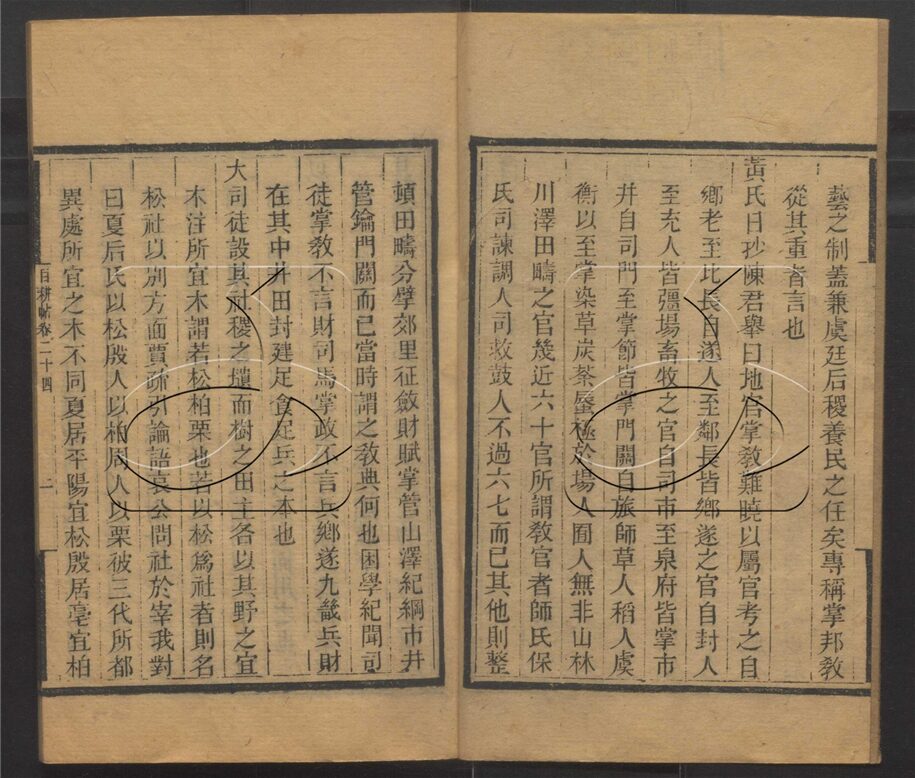 藝之制蓋兼虞廷后稷養民之任矣專稱掌邦敎
從其重者言也
黃氏日抄陳君舉曰地官掌敎難曉以屬官考之自
鄉老至比長自遂人至鄰長皆鄉遂之官自封人
至充人皆疆場畜牧之官自司市至泉府皆掌市
井自司門至掌節皆掌門關自旅師草人稻人虞
衡以至掌染草炭荼蜃極於場人囿人無非山林
川澤田疇之官幾近六十官所謂敎官者師氏保
氏司諫調人司救鼓人不過六七而已其他則整
頓田疇分擘郊里征斂財賦掌管山澤紀綱市井
管鑰門關而已當時謂之敎典何也困學紀聞司
徒掌敎不言財司馬掌政不言兵鄉遂九畿兵財
在其中井田封建足食足兵之本也
大司徒設其社稷之壝而樹之田主各以其野之宜
木注所宜木謂若松柏栗也若以松爲社者則名
松社以別方面賈疏引論語哀公問社於宰我對
曰夏后氏以松殷人以柏周人以栗彼三代所都
異處所宜之木不同夏居平陽宜松殷居亳宜柏
目耕帖卷二十四
二